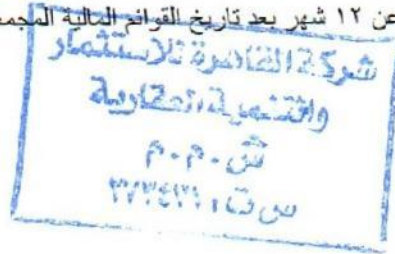 عن ١٢ شهر بعد تاريخ القوائم المالية المجمع
شركة القاهرة للاستثمار
والتنمية العقارية
ش.م.م
س ت: